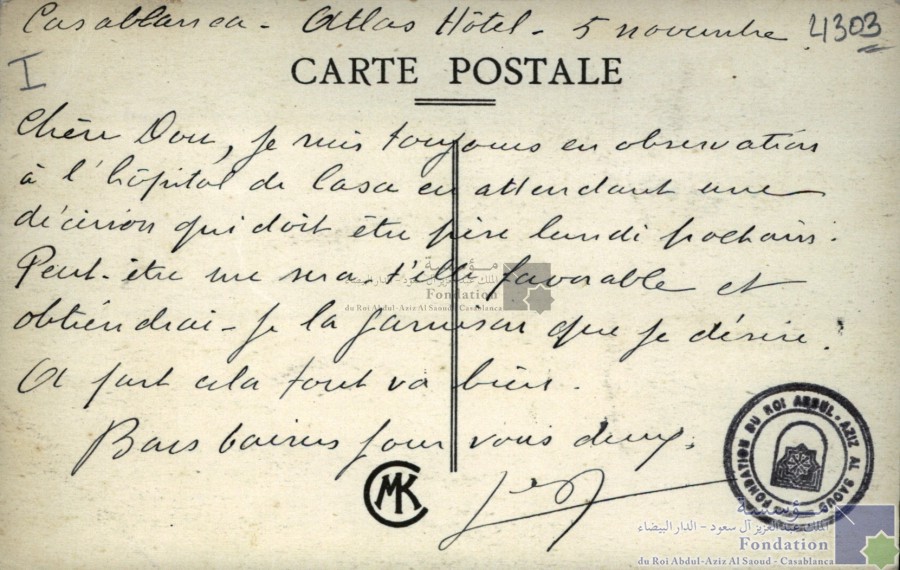 Casablanca - Atlas Hôtel - 5 novembre 4303
I
CARTE POSTALE
Chère Dou, je suis toujours en observation
à l'hôpital de Casa en attendant une
décision qui doit être prise lundi prochain.
Peut-être me sera-t'elle favorable et
obtiendrai-je la garnison que je désire.
A part cela tout va bien.
Bons baisers pour vous deux.
CMK
FONDATION DU ROI ABDUL-AZIZ AL SAOUD
مؤسسة
الملك عبد العزيز آل سعود - الدار البيضاء
Fondation
du Roi Abdul-Aziz Al Saoud - Casablanca
مؤسسة
الملك عبد العزيز آل سعود - الدار البيضاء
Fondation
du Roi Abdul-Aziz Al Saoud - Casablanca